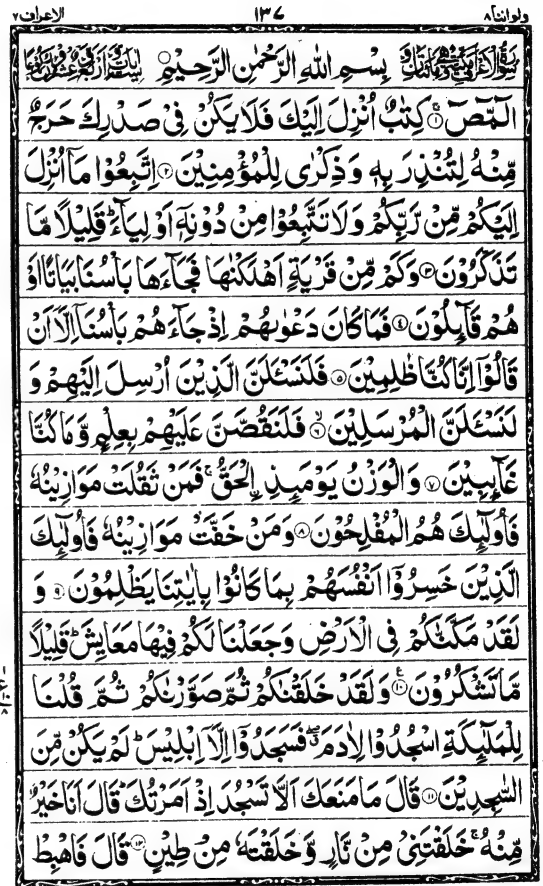 ولواننا ۸ ۱۳۷ الاعراف ۷
بِسْمِ اللهِ الرَّحْمٰنِ الرَّحِيْمِ
الٓمّٓصٓ ۚ﴿۱﴾ كِتٰبٌ اُنْزِلَ اِلَيْكَ فَلَا يَكُنْ فِیْ صَدْرِكَ حَرَجٌ
مِّنْهُ لِتُنْذِرَ بِهٖ وَ ذِكْرٰی لِلْمُؤْمِنِيْنَ ﴿۲﴾ اِتَّبِعُوْا مَاۤ اُنْزِلَ
اِلَيْكُمْ مِّنْ رَّبِّكُمْ وَ لَا تَتَّبِعُوْا مِنْ دُوْنِهٖۤ اَوْلِيَآءَ ؕ قَلِيْلًا مَّا
تَذَكَّرُوْنَ ﴿۳﴾ وَكَمْ مِّنْ قَرْيَةٍ اَهْلَكْنٰهَا فَجَآءَهَا بَاْسُنَا بَيَاتًا اَوْ
هُمْ قَآئِلُوْنَ ﴿۴﴾ فَمَا كَانَ دَعْوٰىهُمْ اِذْ جَآءَهُمْ بَاْسُنَاۤ اِلَّاۤ اَنْ
قَالُوْۤا اِنَّا كُنَّا ظٰلِمِيْنَ ﴿۵﴾ فَلَنَسْـَٔلَنَّ الَّذِيْنَ اُرْسِلَ اِلَيْهِمْ وَ
لَنَسْـَٔلَنَّ الْمُرْسَلِيْنَ ۙ﴿۶﴾ فَلَنَقُصَّنَّ عَلَيْهِمْ بِعِلْمٍ وَّ مَا كُنَّا
غَآئِبِيْنَ ﴿۷﴾ وَ الْوَزْنُ يَوْمَئِذِ اِۨلْحَقُّ ۚ فَمَنْ ثَقُلَتْ مَوَازِيْنُهٗ
فَاُولٰٓئِكَ هُمُ الْمُفْلِحُوْنَ ﴿۸﴾ وَ مَنْ خَفَّتْ مَوَازِيْنُهٗ فَاُولٰٓئِكَ
الَّذِيْنَ خَسِرُوْۤا اَنْفُسَهُمْ بِمَا كَانُوْا بِاٰيٰتِنَا يَظْلِمُوْنَ ﴿۹﴾ وَ
لَقَدْ مَكَّنّٰكُمْ فِی الْاَرْضِ وَ جَعَلْنَا لَكُمْ فِيْهَا مَعَايِشَ ؕ قَلِيْلًا
مَّا تَشْكُرُوْنَ ﴿۱۰﴾ ع وَ لَقَدْ خَلَقْنٰكُمْ ثُمَّ صَوَّرْنٰكُمْ ثُمَّ قُلْنَا
لِلْمَلٰٓئِكَةِ اسْجُدُوْا لِاٰدَمَ ۖۗ فَسَجَدُوْۤا اِلَّاۤ اِبْلِيْسَ ؕ لَمْ يَكُنْ مِّنَ
السّٰجِدِيْنَ ﴿۱۱﴾ قَالَ مَا مَنَعَكَ اَلَّا تَسْجُدَ اِذْ اَمَرْتُكَ ؕ قَالَ اَنَا خَيْرٌ
مِّنْهُ ۚ خَلَقْتَنِیْ مِنْ نَّارٍ وَّ خَلَقْتَهٗ مِنْ طِيْنٍ ﴿۱۲﴾ قَالَ فَاهْبِطْ